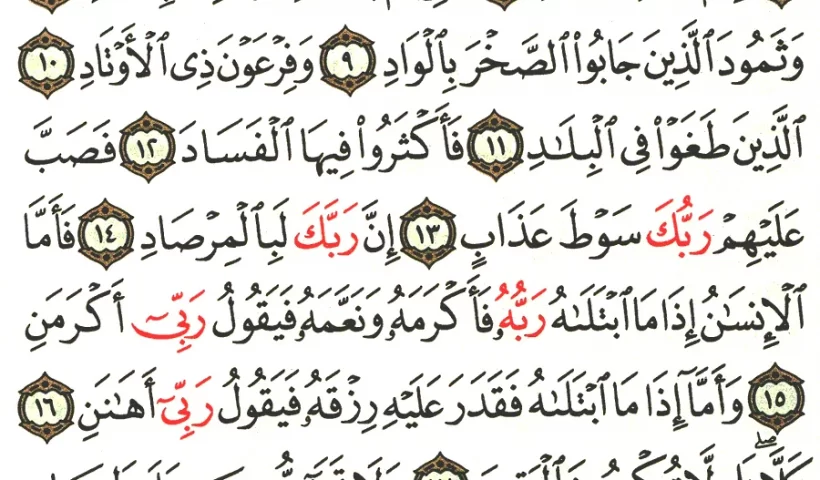 وَثَمُودَ ٱلَّذِينَ جَابُوا۟ ٱلصَّخْرَ بِٱلْوَادِ ٩ وَفِرْعَوْنَ ذِى ٱلْأَوْتَادِ ١٠
ٱلَّذِينَ طَغَوْا۟ فِى ٱلْبِلَـٰدِ ١١ فَأَكْثَرُوا۟ فِيهَا ٱلْفَسَادَ ١٢ فَصَبَّ
عَلَيْهِمْ رَبُّكَ سَوْطَ عَذَابٍ ١٣ إِنَّ رَبَّكَ لَبِٱلْمِرْصَادِ ١٤ فَأَمَّا
ٱلْإِنسَـٰنُ إِذَا مَا ٱبْتَلَىٰهُ رَبُّهُۥ فَأَكْرَمَهُۥ وَنَعَّمَهُۥ فَيَقُولُ رَبِّىٓ أَكْرَمَنِ
١٥ وَأَمَّآ إِذَا مَا ٱبْتَلَىٰهُ فَقَدَرَ عَلَيْهِ رِزْقَهُۥ فَيَقُولُ رَبِّىٓ أَهَـٰنَنِ ١٦